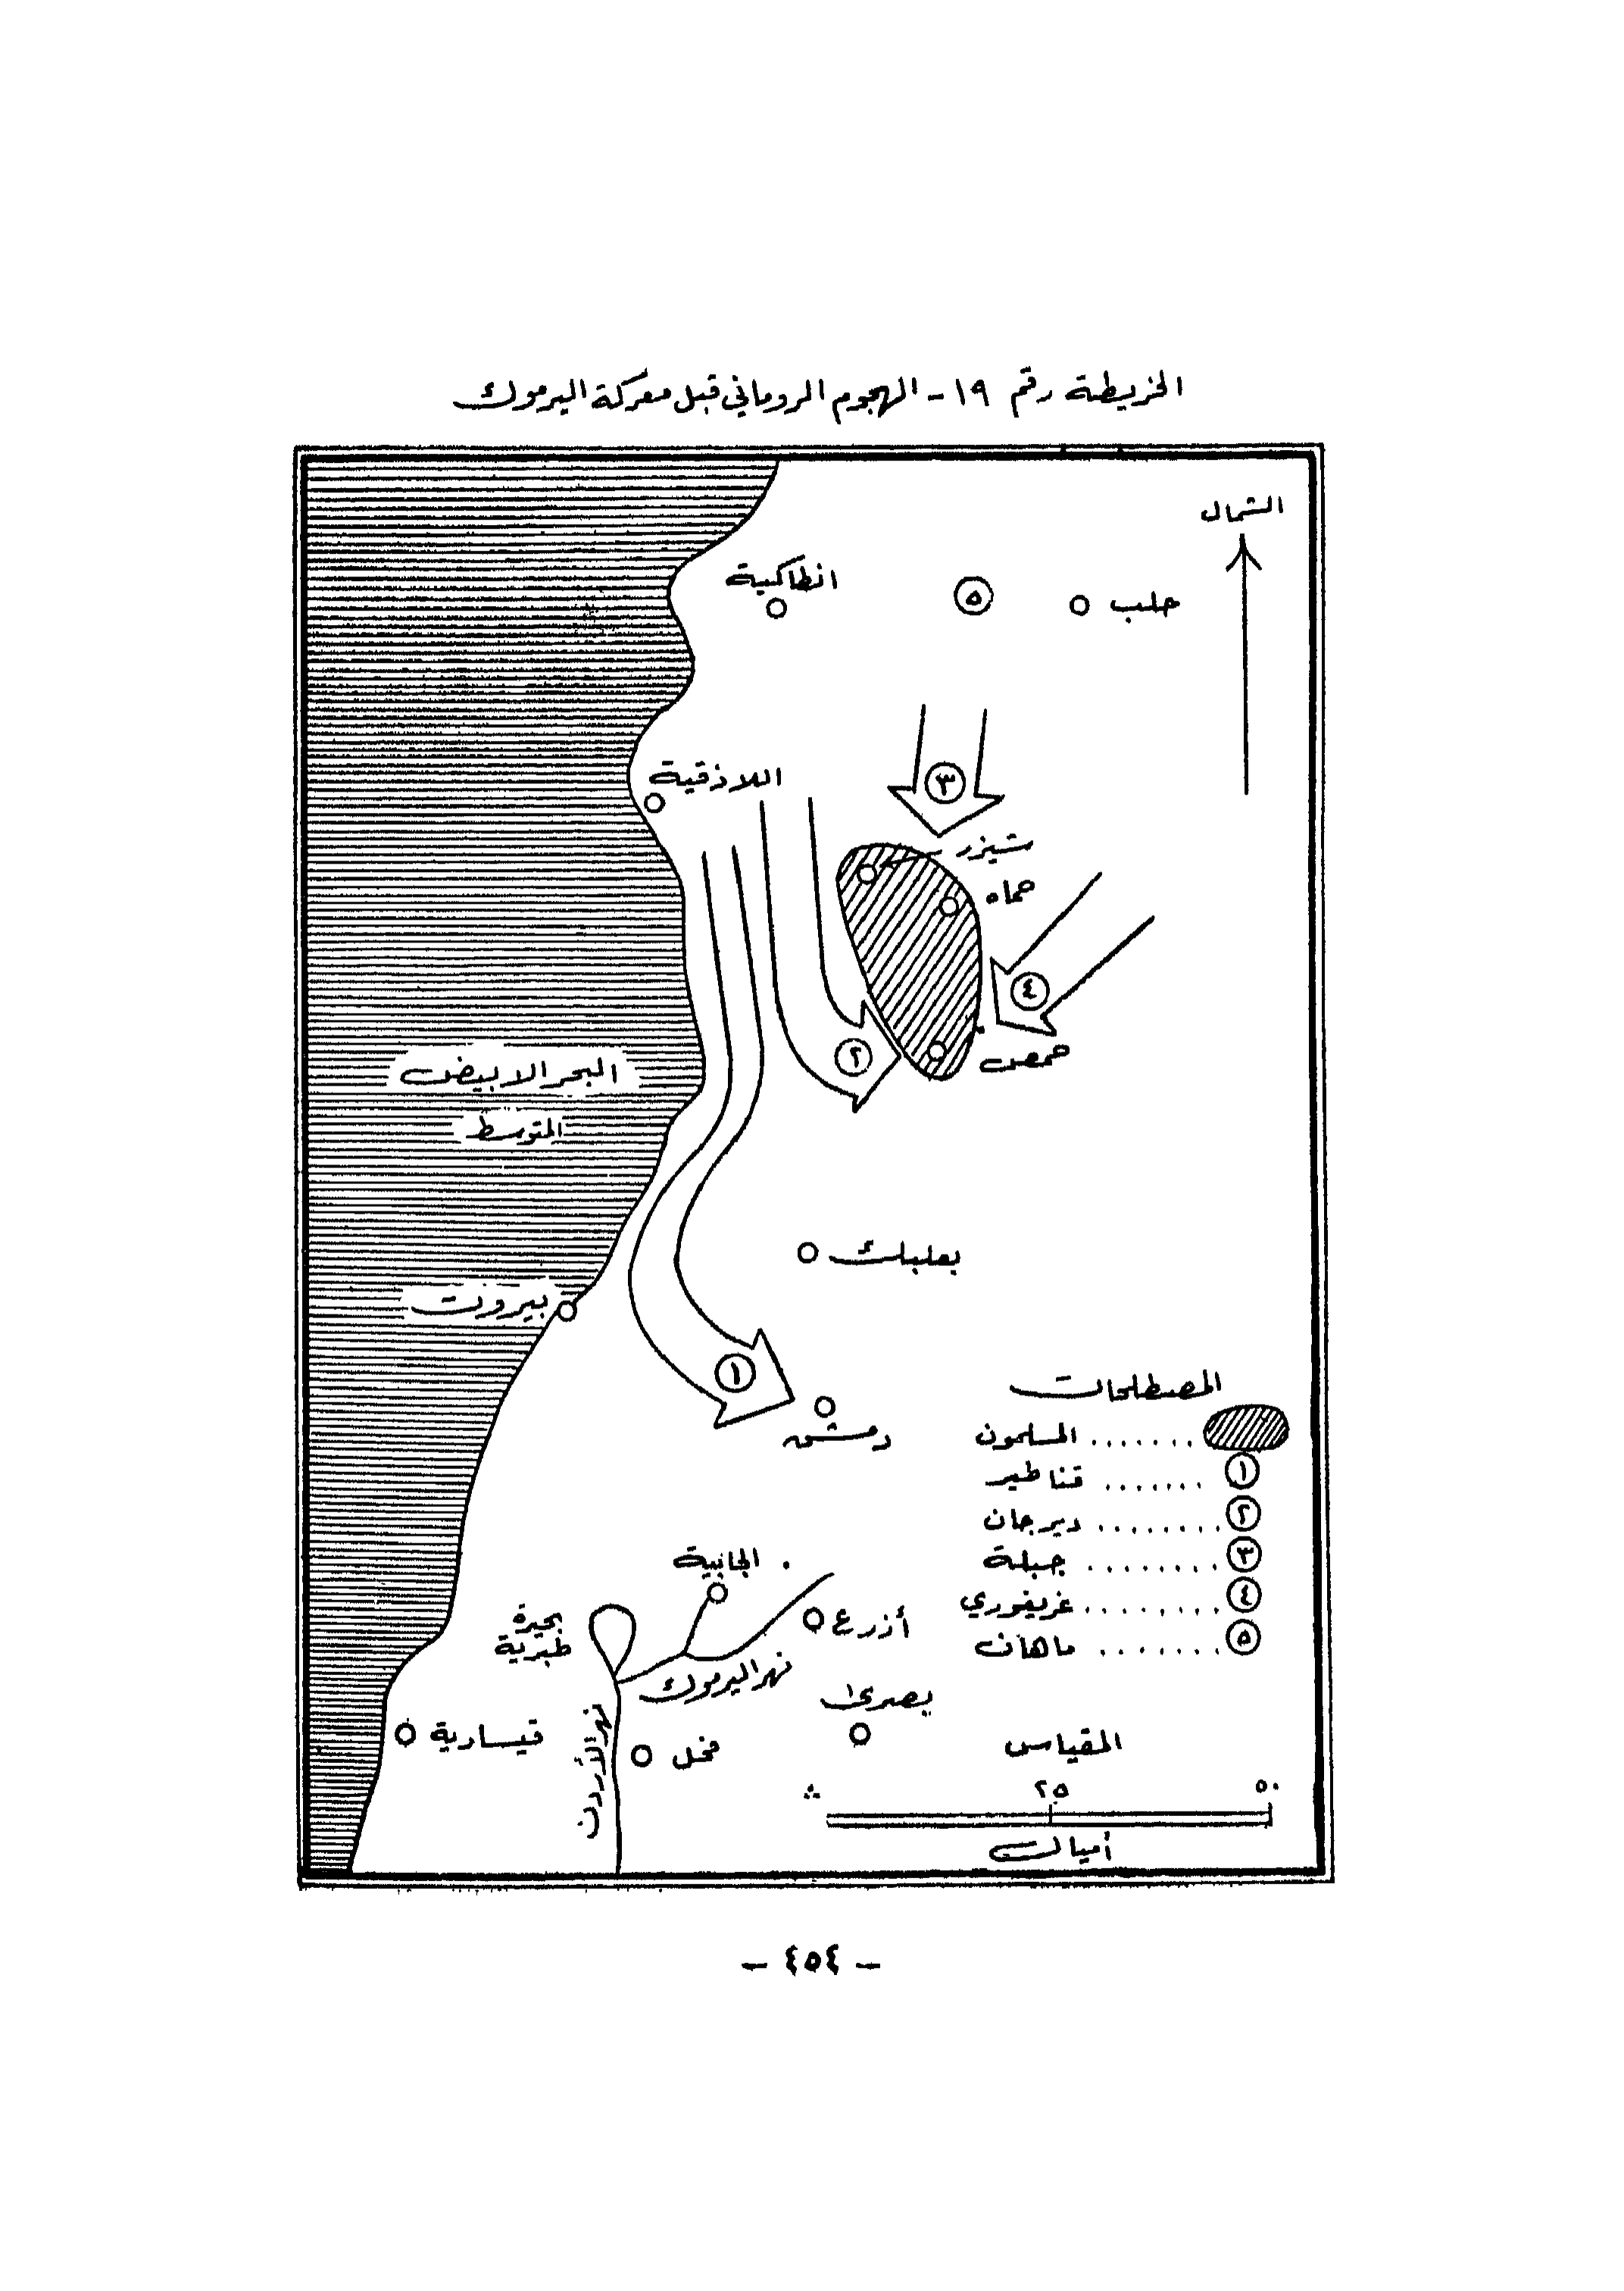 الخريطة رقم ١٩ - الهجوم الروماني قبل معركة اليرموك
الشمال
انطاكية
٥
حلب
اللاذقية
٣
شيزر
حماه
٤
حمص
٢
البحر الابيض
المتوسط
بعلبك
بيروت
١
دمشق
المصطلحات
المسلمون
١ ....... قناطير
٢ ........ ديرجان
٣ ........ جبلة
٤ ........ غريغوري
٥ ....... ماهان
الجابية
أذرع
بحيرة
طبرية
نهر اليرموك
بصرى
قيسارية
نهر الأردن
فحل
المقياس
٥٠
٢٥
أميال
- ٤٥٤ -